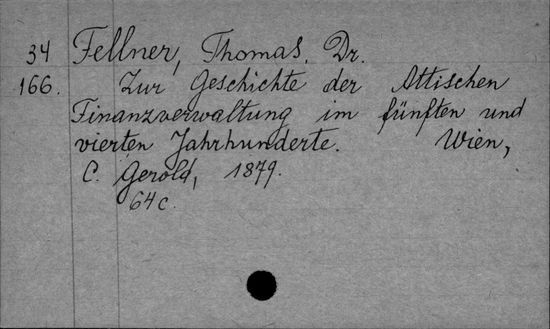 34 Fellner, Thomas, Dr.
166. Zur Geschichte der Attischen
Finanzverwaltung im fünften und
vierten Jahrhunderte. Wien,
C. Gerold, 1879.
64 c.